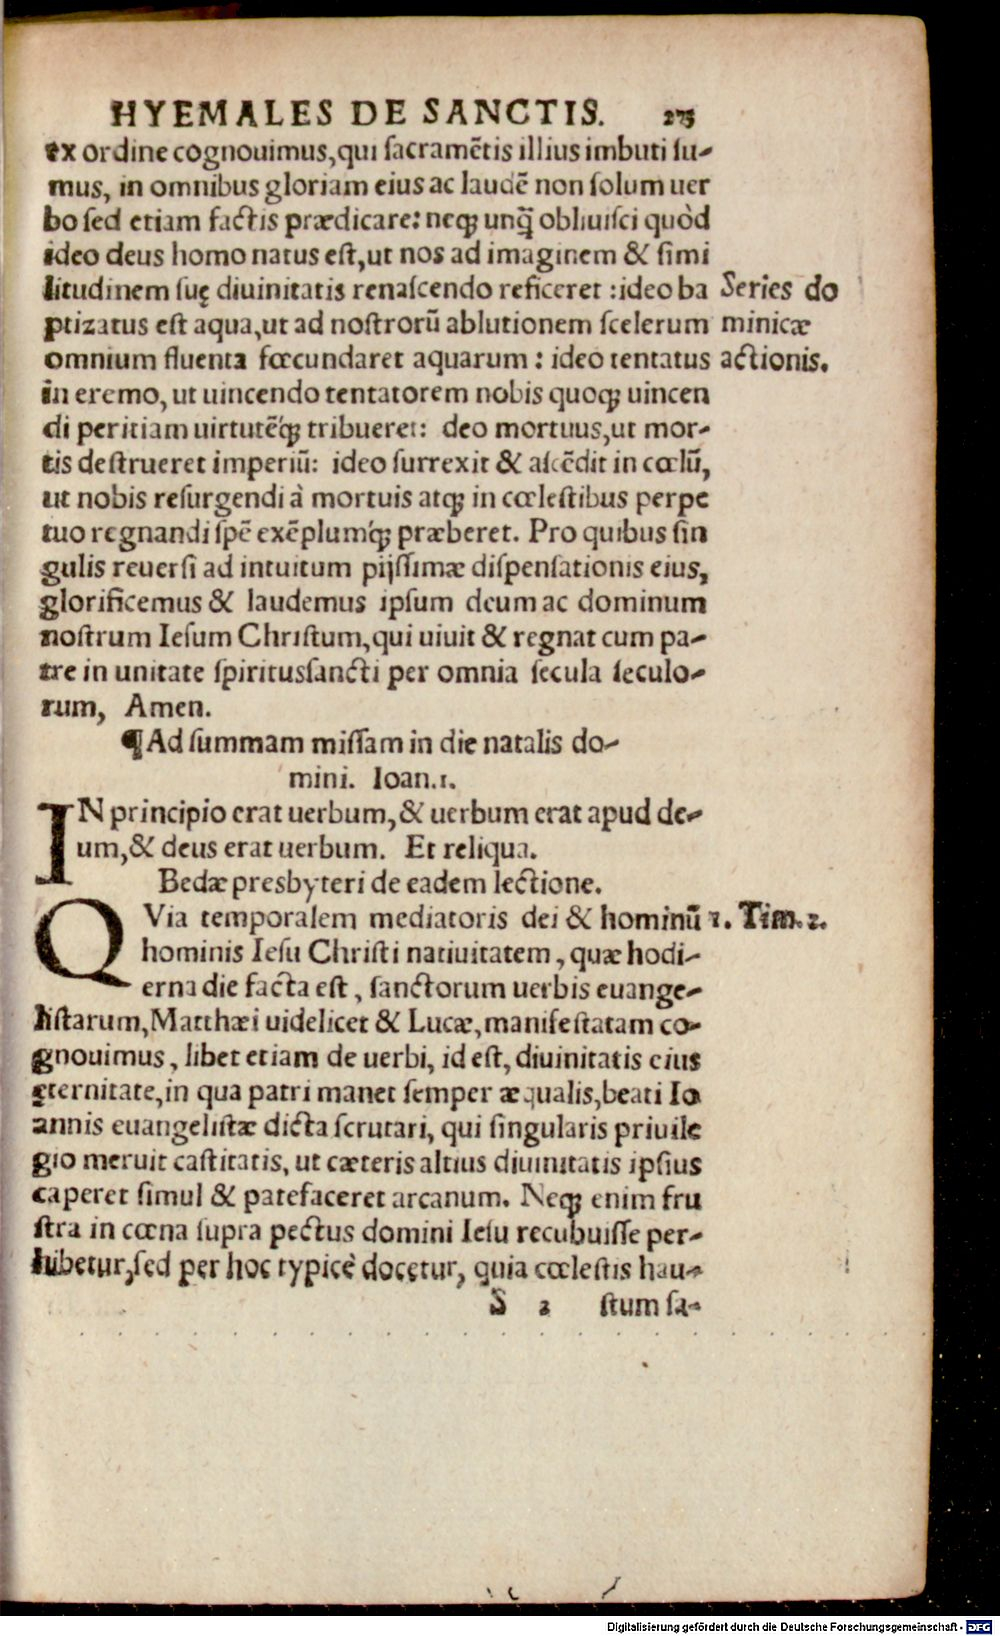 HYEMALES DE SANCTIS. 275
ex ordine cognouimus, qui sacramẽtis illius imbuti su-
mus, in omnibus gloriam eius ac laudẽ non solum uer
bo sed etiam factis prædicare: neqꝫ unq̃ obliuisci quòd
ideo deus homo natus est, ut nos ad imaginem & simi
litudinem suę diuinitatis renascendo reficeret : ideo ba
Series do
ptizatus est aqua, ut ad nostrorũ ablutionem scelerum
minicæ
omnium fluenta fœcundaret aquarum : ideo tentatus
actionis.
in eremo, ut uincendo tentatorem nobis quoqꝫ uincen
di peritiam uirtutẽq́ꝫ tribueret: deo mortuus, ut mor-
tis destrueret imperiũ: ideo surrexit & ascẽdit in cœlũ,
ut nobis resurgendi à mortuis atqꝫ in cœlestibus perpe
tuo regnandi spẽ exẽplumq́ꝫ præberet. Pro quibus sin
gulis reuersi ad intuitum pijssimæ dispensationis eius,
glorificemus & laudemus ipsum deum ac dominum
nostrum Iesum Christum, qui uiuit & regnat cum pa-
tre in unitate spiritussancti per omnia secula seculo-
rum, Amen.
¶ Ad summam missam in die natalis do-
mini. Ioan.1.
IN principio erat uerbum, & uerbum erat apud de-
um, & deus erat uerbum. Et reliqua.
Bedæ presbyteri de eadem lectione.
QVia temporalem mediatoris dei & hominũ
1. Tim. 2.
hominis Iesu Christi natiuitatem, quæ hodi-
erna die facta est, sanctorum uerbis euange-
listarum, Matthæi uidelicet & Lucæ, manifestatam co-
gnouimus, libet etiam de uerbi, id est, diuinitatis eius
ęternitate, in qua patri manet semper æqualis, beati Io
annis euangelistæ dicta scrutari, qui singularis priuile
gio meruit castitatis, ut cæteris altius diuinitatis ipsius
caperet simul & patefaceret arcanum. Neqꝫ enim fru
stra in cœna supra pectus domini Iesu recubuisse per-
hibetur, sed per hoc typicè docetur, quia cœlestis hau-
S 2 stum sa-
Digitalisierung gefördert durch die Deutsche Forschungsgemeinschaft - DFG